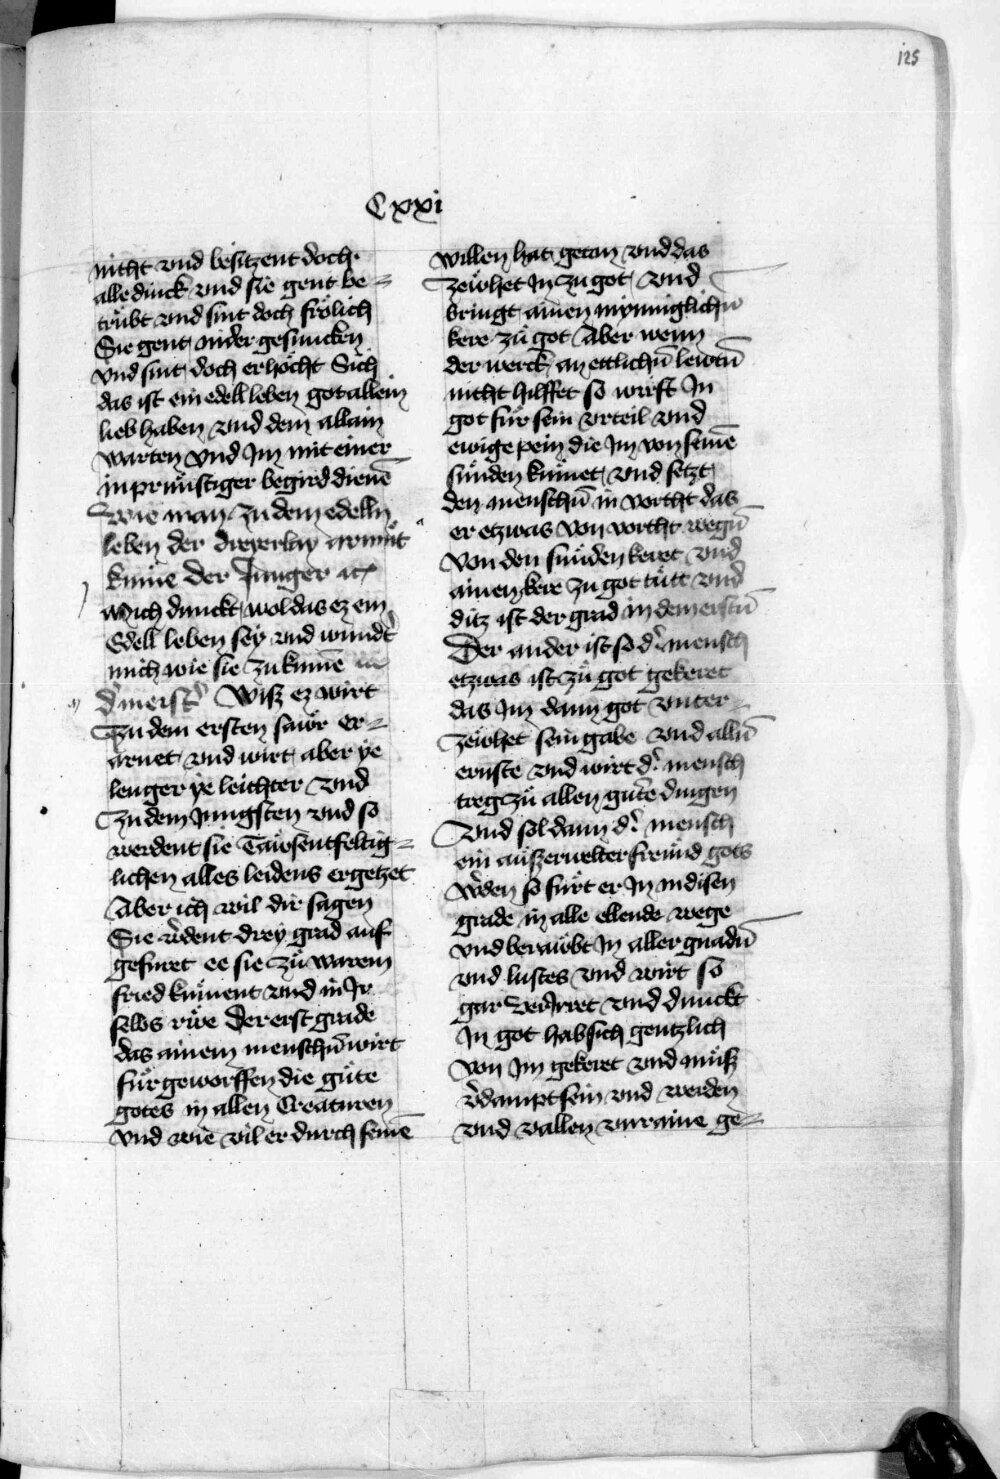 125
Cxxi
nicht vnd besitzent doch
alle dinck vnd sie gent be⸗
trübt vnd sint doch frölich
Sie gent nider gesuncken
vnd sint doch erhöcht Sich
das ist ein edell leben got allein
lieb haben vnd dem allain
warten vnd Jm mit einer
inprünstiger begird dienē
Wie man zu dem edelln
leben der dreyerlay armüt
kume der Junger
Mich dunckt wol das ez ein
Edell leben sey vnd wundt̉
mich wie sie zu kumē
d̉ meist̉ Wisz ez wirt
Zu dem ersten sawr er⸗
arnet vnd wirt aber ye
lenger ye leichter vnd
Zu dem Jungsten vnd so
werdent sie Tawsentfeltig⸗
lichen alles leidens ergetzet
Aber ich wil dir sagen
Sie w̉dent drey grad auf
gefuret ee sie zu warem
fried kument vnd in Jr
selbs rwe Der erst grade
das ainem menschn̄ wirt
für geworffen die güte
gotes in allen Creaturen
vnd wie vil er durch seinē
willen hat getan vnd das
zewhet Jn zu got vnd
bringt ainen mynniglichn̄
kere zu got Aber wenn
der werck an ettlichn̄ lewtn̄
nicht hilffet so wirft Jn
got für sein vrteil vnd
ewige pein die Jm von seinē
sünden kumet vnd setzt
den menschn̄ in vorcht das
er etzwas von vorcht wegn̄
von den sünden keret vnd
ainen kere zu got tütt vnd
ditz ist der grad in dem erstn̄
Der ander ist so d̉ mensch
etzwas ist zu got gekeret
das Jm dann got vnter⸗
zewhet sein gabe vnd alln̄
ernste vnd wirt d̉ mensch
treg zu allen gutē dingen
Vnd sol dann d̉ mensch
ein auszerwelter freund gots
w̉den so fürt er Jn in disen
grade in alle ellende wege
vnd berawbt Jn aller gnadn̄
vnd lustes vnd wirt so
gar verJrret vnd dunckt
Jn got hab sich gentzlich
von Jm gekeret vnd müsz
v̉dampt sein vnd werden
vnd vallen vnraine ge⸗